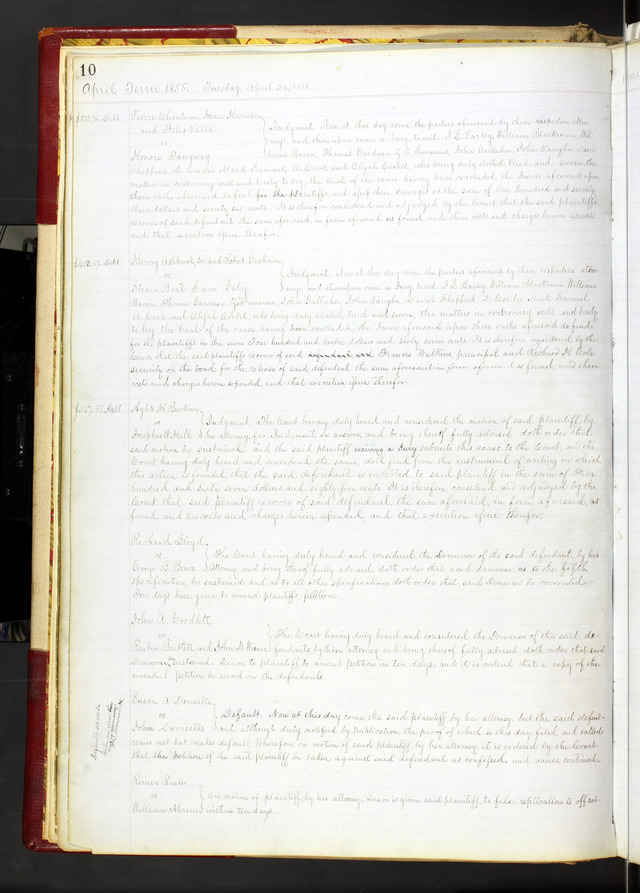 10
April Term 1855. Tuesday April 24, 1855
Pierre Chouteau, James Harrison
and Felix Valle
vs
Judgment. Now at this day come the parties aforesaid by their respective attor-
neys, and thereupon come a Jury, to wit: J. G. Barley, William Blackman, Wil-
liam Bacon, Thomas Gardner, Z. F. Simmons, John Callahan, John Vaughn, David
Sheppard, D. Coroler, Mark Samuel, A. Cook and Elijah Corbit, who being duly elected tried and sworn the
matters in controversy well and truly to try, the trial of the cause having been concluded, the Jurors aforesaid upon
their oaths aforesaid do find for the plaintiffs, and assess their damages at the sum of One hundred and seventy
three dollars and seventy six cents. It is therefore considered and adjudged by the Court that the said plaintiffs
recover of said defendant the sum aforesaid, in form aforesaid as found, and their costs and charges herein expended
and that execution issue therefor.
Judgment. Now at this day come the parties aforesaid by their respective attor-
neys, and thereupon come a Jury, to wit: J. G. Barley, William Blackman, William
Bacon, Thomas Gardner, Z. F. Simmons, John Callahan, John Vaughn, David Sheppard, D. Coroler, Mark Samuel,
A. Cook and Elijah Corbit, who being duly elected, tried and sworn the matters in controversy well and truly
to try, the trial of the cause having been concluded, the Jurors aforesaid upon their oaths aforesaid do find
for the plaintiffs in the sum Four hundred and twelve dollars and sixty seven cents. It is therefore considered by the
Court that the said plaintiffs recover of said Francis Watkins principal and Richard H. Cole
security on the bond for the release of said defendant the sum aforesaid in form aforesaid as found, and their
costs and charges herein expended, and that execution issue therefor.
vs
Joseph W. Hall
Judgment. The Court having duly heard and considered the motion of said plaintiff, by
her attorney, for Judgment on answer, and being thereof fully advised, doth order that
said motion be sustained, and the said plaintiff waiving a Jury submits this cause to the Court, and the
Court having duly heard and considered the same, doth find from the instrument of writing on which
this action is founded, that the said defendant is indebted to said plaintiff in the sum of Five
hundred and sixty seven dollars and eighty five cents. It is therefore considered and adjudged by the
Court that said plaintiff recover of said defendant the sum aforesaid, in form aforesaid, as
found, and his costs and charges herein expended, and that execution issue therefor.
Richard Lloyd
vs
The Court having duly heard and considered the Demurrer of the said defendant, by her
Attorney, and being thereof fully advised, doth order that said demurrer, as to the fifth
specification, be sustained, and as to all other specifications doth order that said Demurrer be overruled.
Ten days leave given to amend plaintiffs petition.
John A. Woodlett
vs
Reuben Bartlett and
The Court having duly heard and considered the Demurrer of the said de-
fendants by their attorney, and being thereof fully advised, doth order that said
Demurrer be sustained. Leave to plaintiff to amend petition in ten days, and it is ordered that a copy of the
amended petition be served on the defendants
Susan J. Darneille
vs
John Darneille
Default. Now at this day come the said plaintiff by her attorney, but the said defend-
ant although duly notified by publication, the proof of which is this day filed, and called
comes not but makes default, therefore on motion of said plaintiff by her attorney it is ordered by the Court
that the petition of the said plaintiff be taken against said defendant as confessed, and cause continued.
vs
William Ahrens
On motion of plaintiff, by her attorney, Leave is given said plaintiff, to file replication to off set
within ten days.